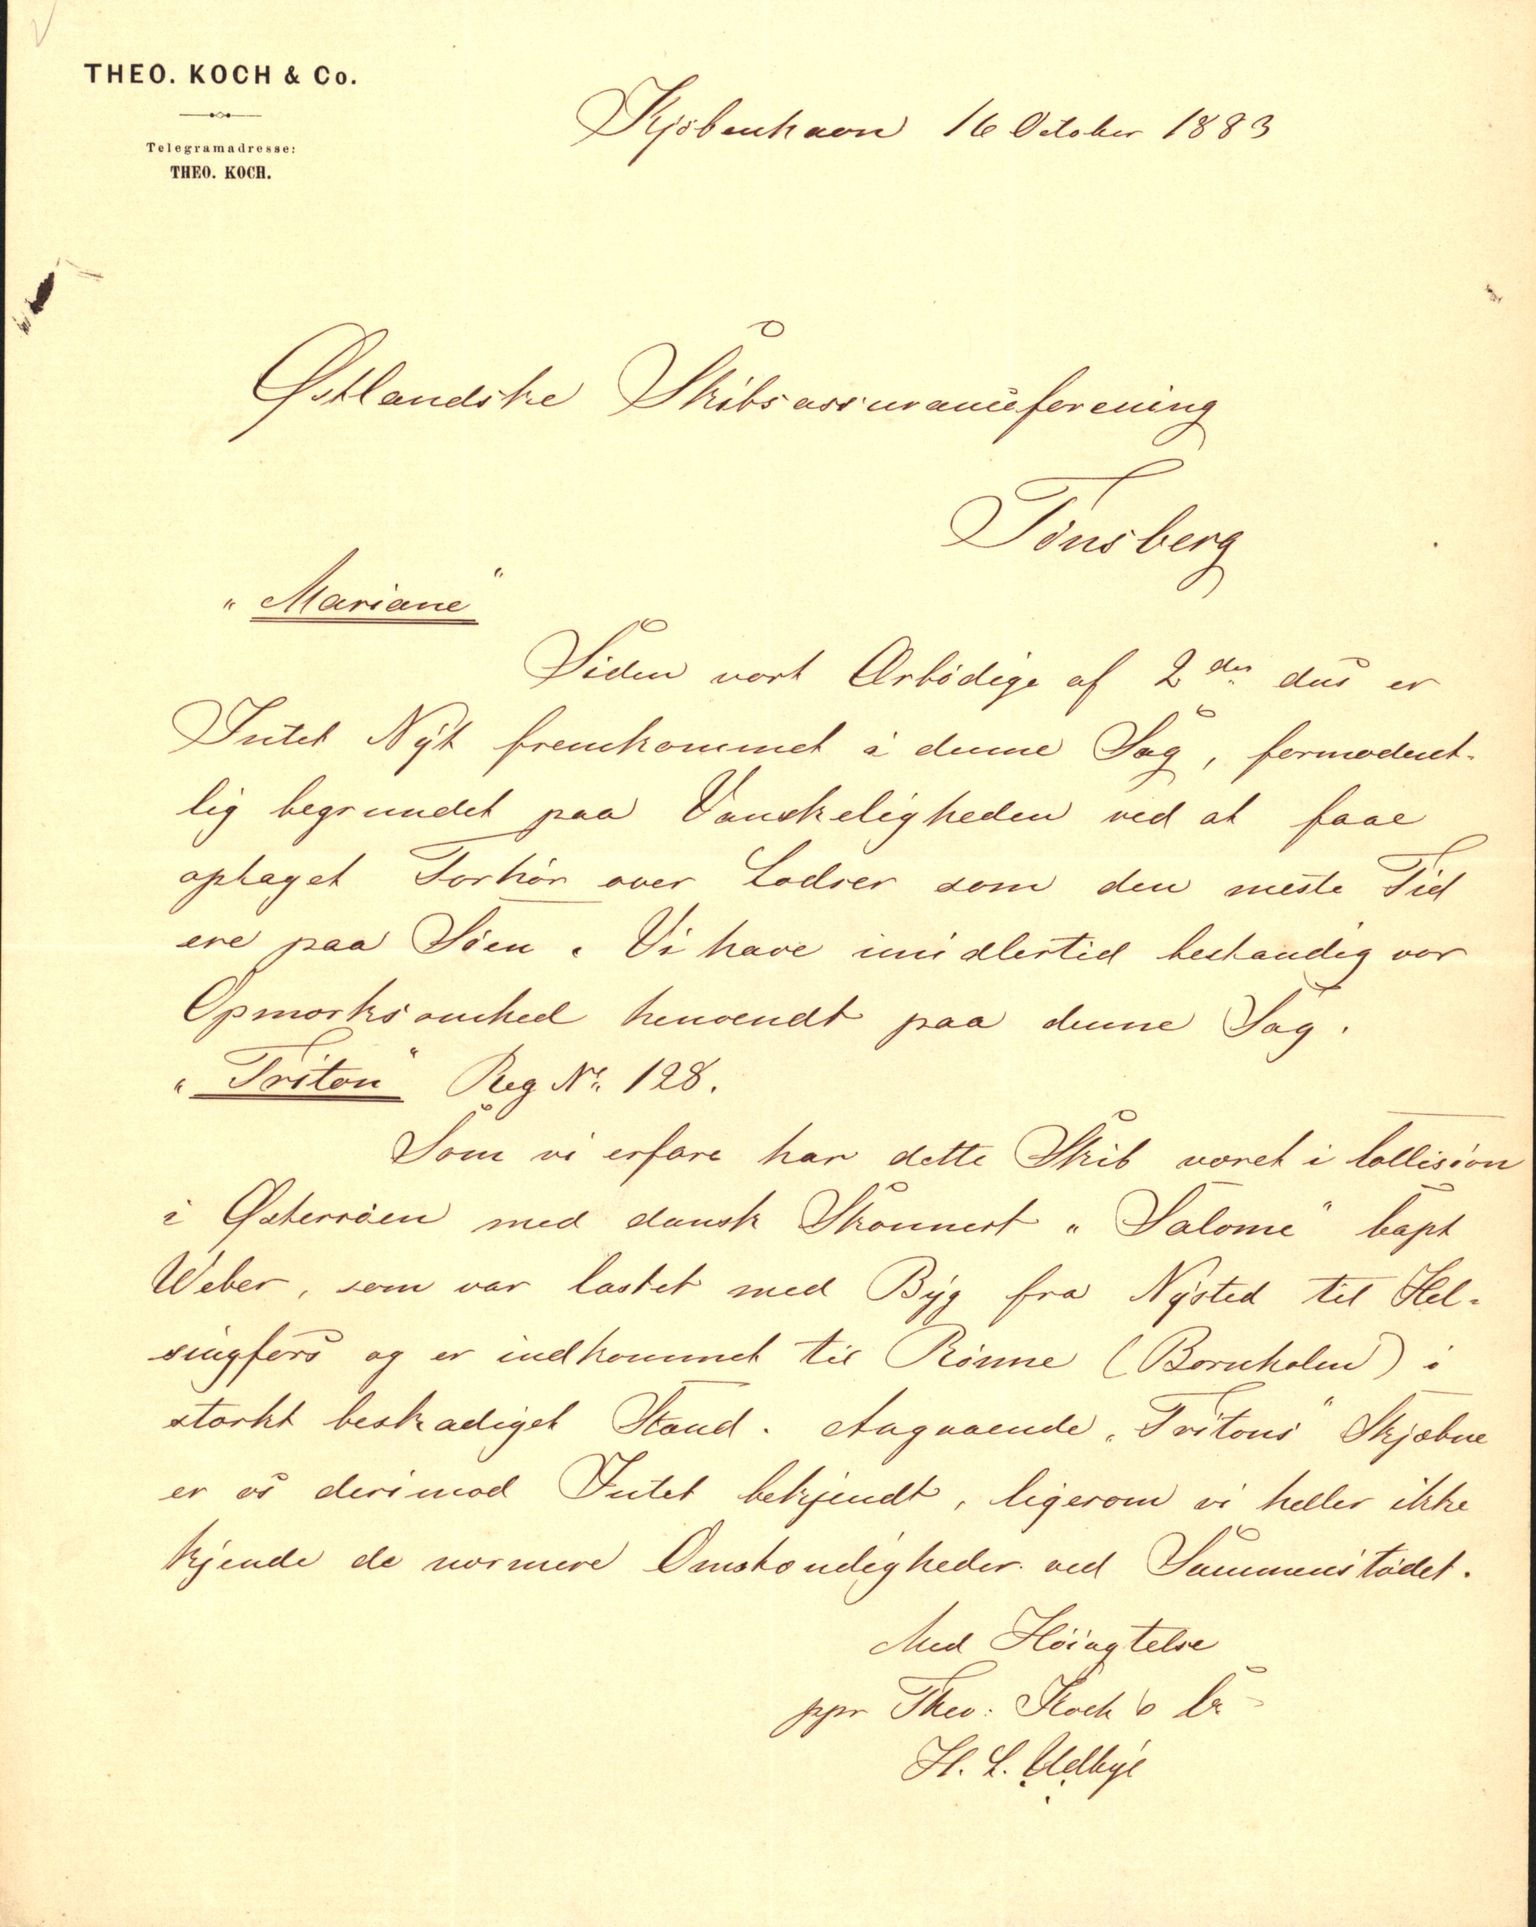 THEO. KOCH & Co.
Telegramadresse:
THEO. KOCH.
Kjøbenhavn 16 October 1883
Østlandske Skibsassuranceforening
Tønsberg
„Mariane“
Siden vort Ærbødige af 2den ds er
Intet Nyt fremkommet i denne Sag, formodent-
lig begrundet paa Vanskeligheden ved at faae
optaget Forhør over Lodser som den meste Tid
ere paa Søen. Vi have imidlertid bestandig vor
Opmærksomhed henvendt paa denne Sag.
„Triton“ Reg No. 128.
Som vi erfare har dette Skib været i Collision
i Østersøen med dansk Skonnert „Salome“ Capt
Weber, som var lastet med Byg fra Nysted til Hel-
singfors og er indkommet til Rønne (Bornholm) i
stærkt beskadiget Stand. Angaaende „Tritons“ Skjæbne
er os derimod Intet bekjendt, ligesom vi heller ikke
kjende de nærmere Omstændigheder ved Sammenstødet.
Med Høiagtelse
ppr Theo. Koch & Co
H. L.